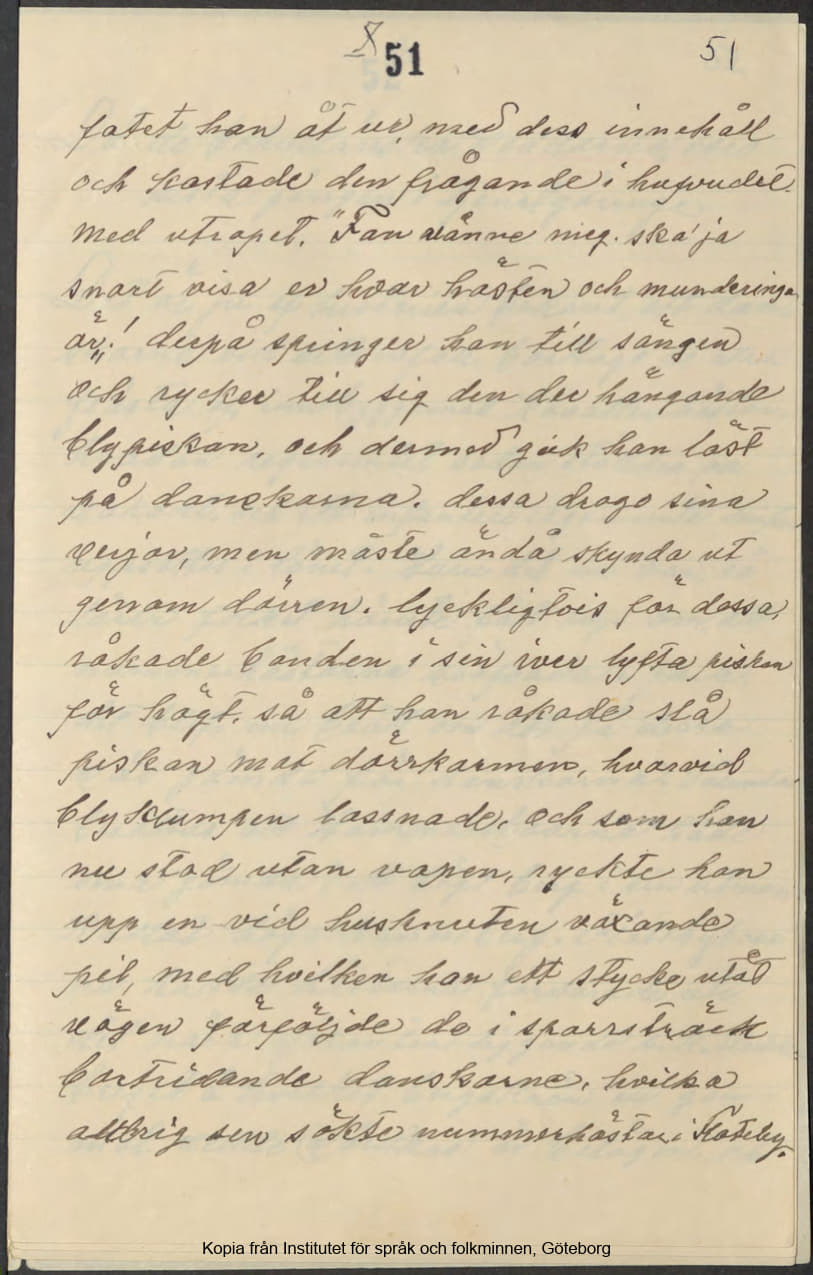 51 51
fatet han åt ur, med dess innehåll
och kastade den frågande i hufvudet.
med utropet. "Fan vänne meg. ska' ja
snart visa er hvar hästen och munderinga
är!" derpå springer han till sängen
och rycker till sig den der hängande
blypiskan, och dermed gick han löst
på danskarna. dessa drogo sina
verjor, men måste ändå skynda ut
genom dörren. lyckligtvis för dessa,
råkade bonden i sin iver lyfta piskan
för högt. så att han råkade slå
piskan mot dörrkarmen, hvarvid
blyklumpen lossnade, och som han
nu stod utan vapen, ryckte han
upp en vid husknuten växande
pil, med hvilken han ett stycke utåt
vägen förföljde de i sporrsträck
bortridande danskarne, hvilka
aldrig sen sökte nummerhästar i Floteby.
Kopia från Institutet för språk och folkminnen, Göteborg